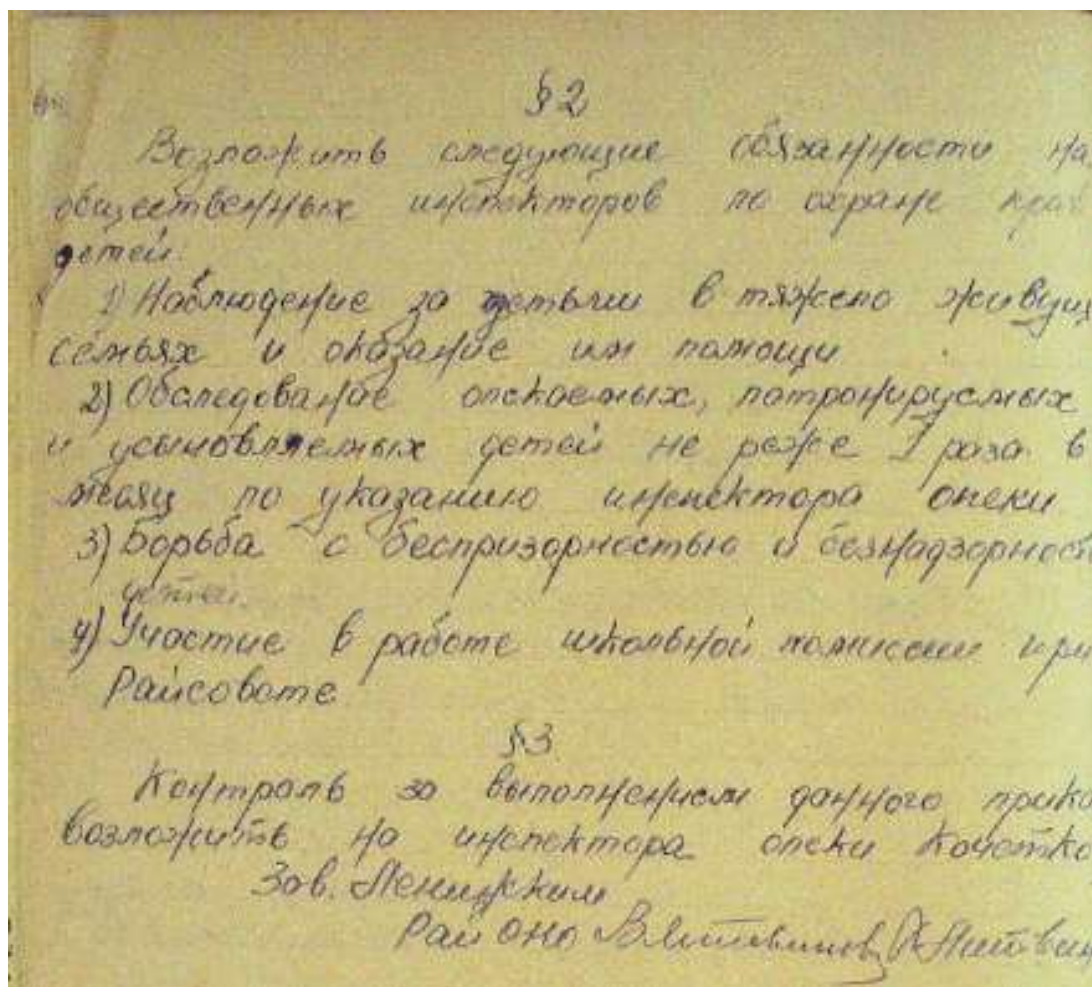 §2
Возложить следующие обязанности на
общественных инспекторов по охране прав
детей.
1) Наблюдение за детьми в тяжело живущ
семьях и оказание им помощи
2) Обследование опекаемых, патронируемых
и усыновляемых детей не реже 1 раза в
месяц по указанию инспектора опеки
3) Борьба с беспризорностью и безнадзорност
детей.
4) Участие в работе школьной комиссии при
Райсовете
§3
Контроль за выполнением данного прика
возложить на инспектора опеки Кочетко
Зав. Ленинским
Районо Влитвинов Литвин